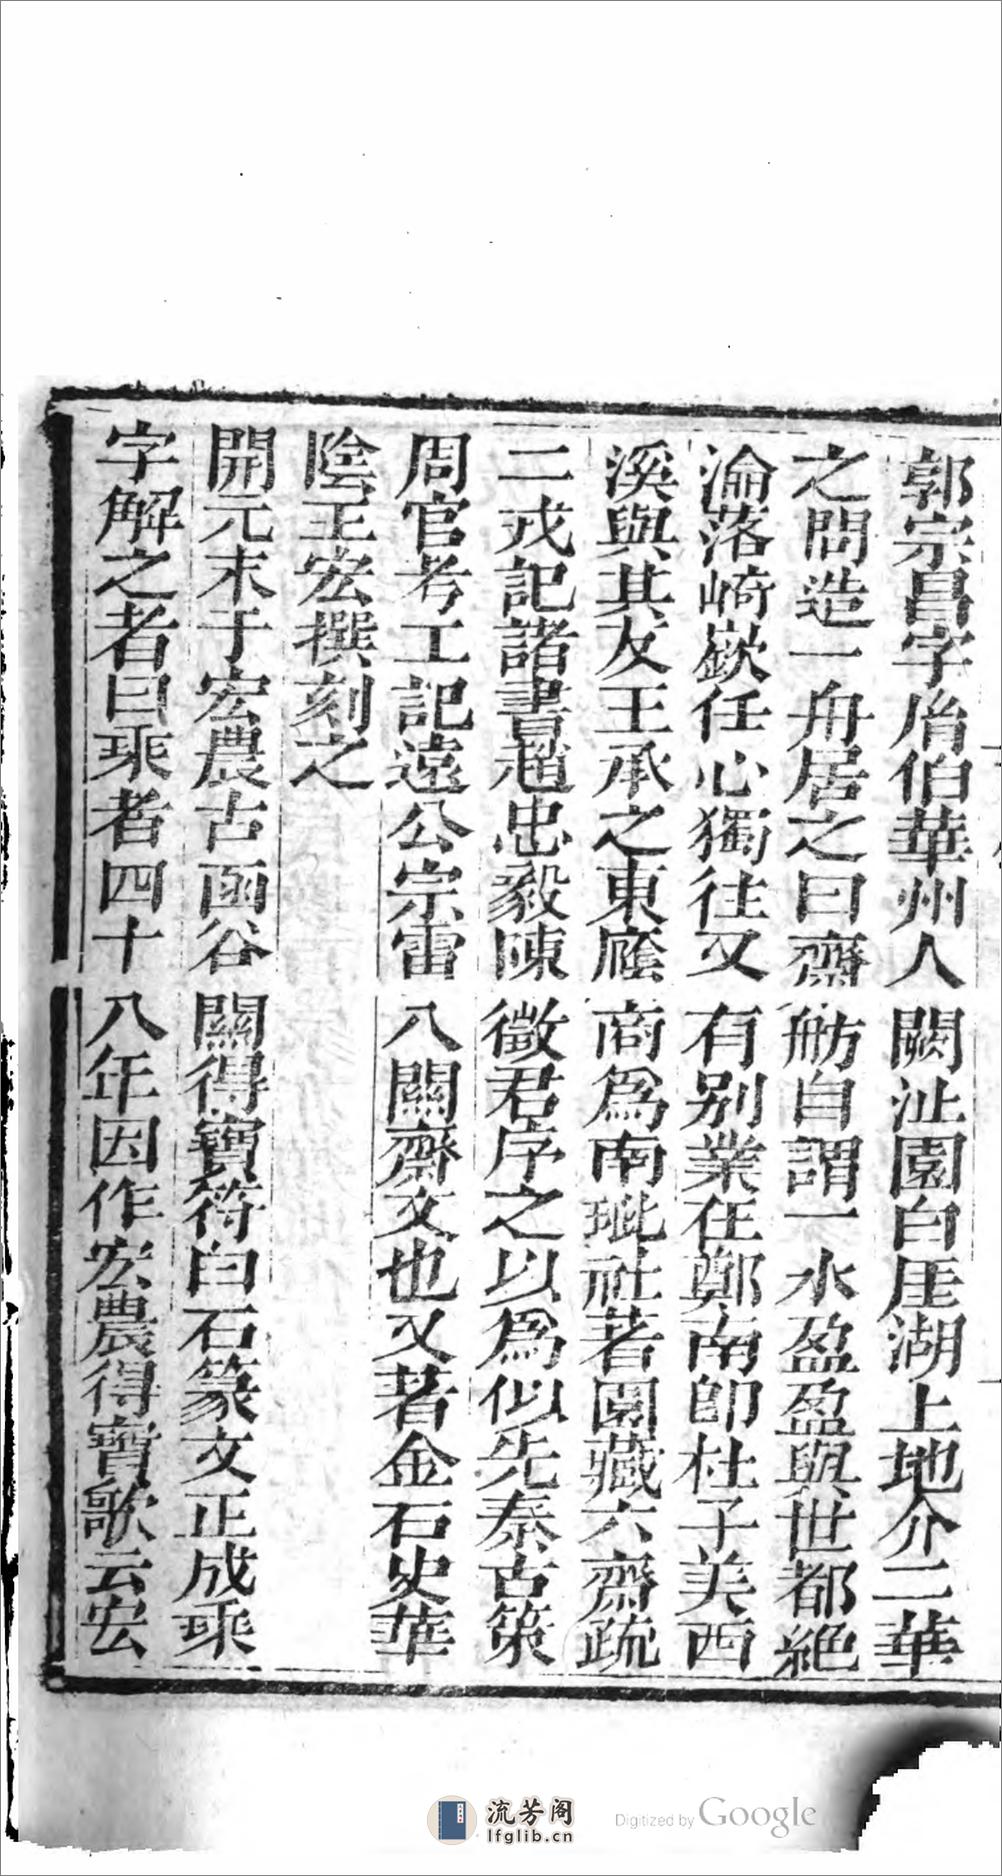 郭宗昌字胤伯華州人闕沚園白厓湖上地介二華
之間造一舟居之曰齋舫自謂一水盈盈與世都絶
淪落﨑嶔任心獨往又有别業在鄭南卽杜子美西
溪與其友王承之東廕商爲南玼社著園藏六齋疏
二戎記諸書趙忠毅陳徵君序之以爲似先秦古策
周官考工記遠公宗雷八關齋文也又著金石史華
陰王宏撰刻之
開元末于宏農古函谷關得寶符白石篆文正成乘
字解之者曰乘者四十八年因作宏農得寶歌云宏
流芳阁
lfglib.cn
Digitized by Google